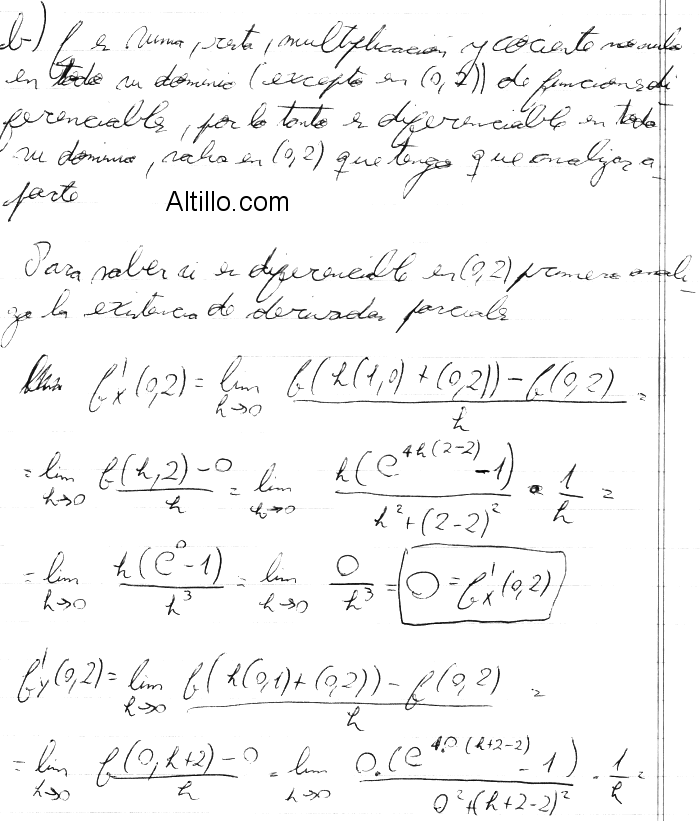 b) f es suma, resta, multiplicación y cociente no nulo
en todo su dominio (excepto en (0,2)) de funciones di
ferenciables, por lo tanto es diferenciable en todo
su dominio, salvo en (0,2) que tengo que analizar a-
parte
Altillo.com
Para saber si es diferenciable en (0,2) primero anali-
zo la existencia de derivadas parciales
f'x(0,2) = lim h→0 (f(h(1,0) + (0,2)) - f(0,2))/h =
= lim h→0 (f(h,2) - 0)/h = lim h→0 (h(e^(4h(2-2)) - 1))/(h² + (2-2)²) · 1/h =
= lim h→0 (h(e^0 - 1))/h³ = lim h→0 0/h³ = 0 = f'x(0,2)
f'y(0,2) = lim h→0 (f(h(0,1) + (0,2)) - f(0,2))/h =
= lim h→0 (f(0,h+2) - 0)/h = lim h→0 (0.(e^(4.0(h+2-2)) - 1))/(0² + (h+2-2)²) · 1/h =